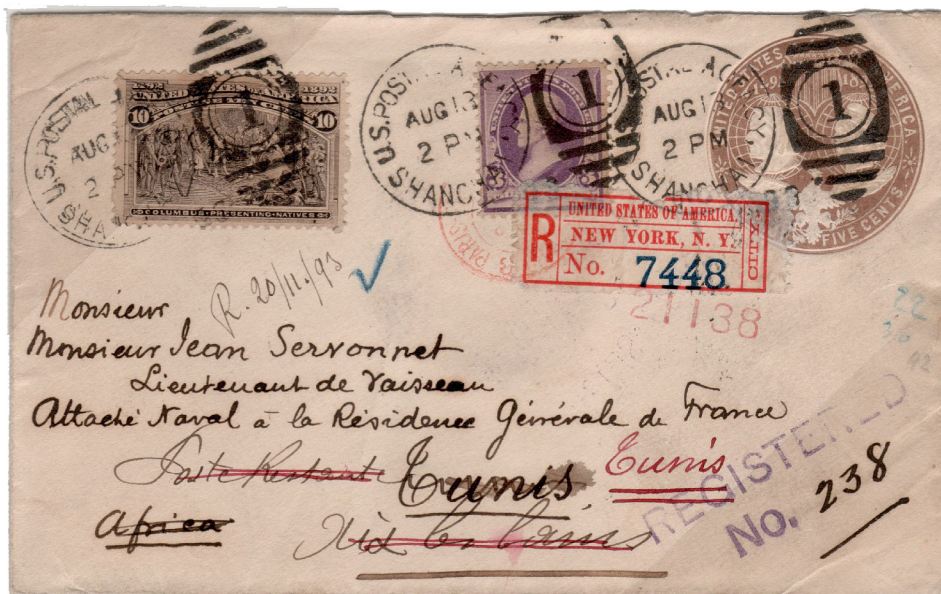 U.S. POSTAL
AUG
2 P
SHA
1892 1892
UNITED STATES OF AMERICA
10 10
COLUMBUS PRESENTING NATIVES
1
U.S. POSTAL AGE
AUG 13
2 PM
SHANGHA
1
POSTAL AGENCY
AUG 13
2 PM
SHANGHAI
1
UNITED STATES OF AMERICA.
FIVE CENTS.
R
UNITED STATES OF AMERICA.
NEW YORK, N. Y.
No. 7448
PARIS
21138
R. 20/11/93
Monsieur
Monsieur Jean Servonnet
Lieutenant de Vaisseau
Attaché Naval à la Résidence Générale de France
Poste Restante
Tunis
Tunis
Africa
Aix les bains
22
42
REGISTERED
No. 238